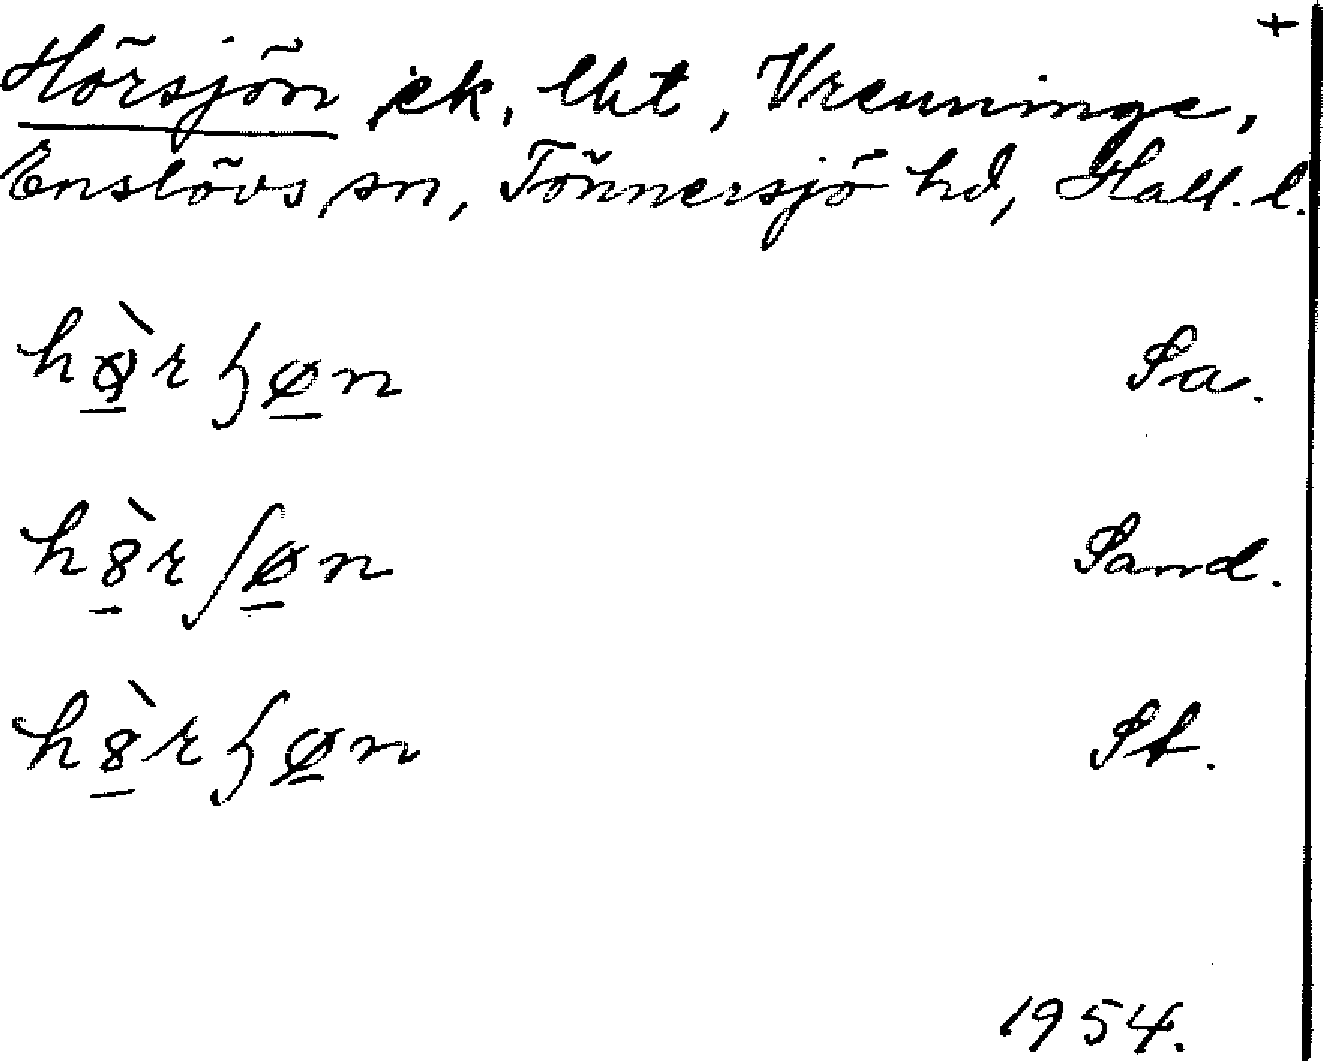 +
Hörsjön ek. lht, Vrenninge,
Enslövs sn, Tönnersjö hd, Hall. l.
hø̀rɧøn Sa.
h8̀rʃøn Sand.
h8̀rɧøn St.
1954.